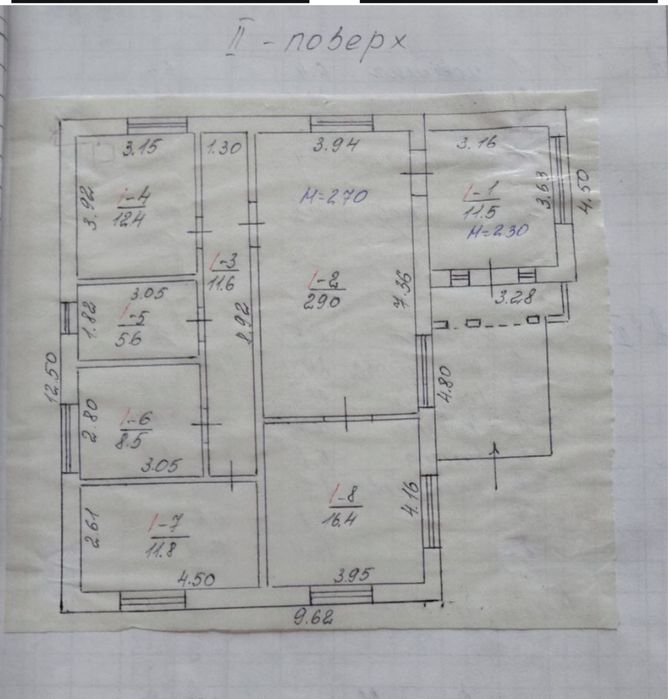 II - поверх
3.15
1.30
3.94
3.16
3.92
1-4
12.4
H=2.70
1-1
11.5
H=2.30
3.63
4.50
1-3
11.6
1-2
29.0
7.36
3.28
3.05
1.82
1-5
5.6
8.92
12.50
4.80
2.80
1-6
8.5
3.05
2.61
1-7
11.8
4.50
1-8
16.4
4.16
3.95
9.62